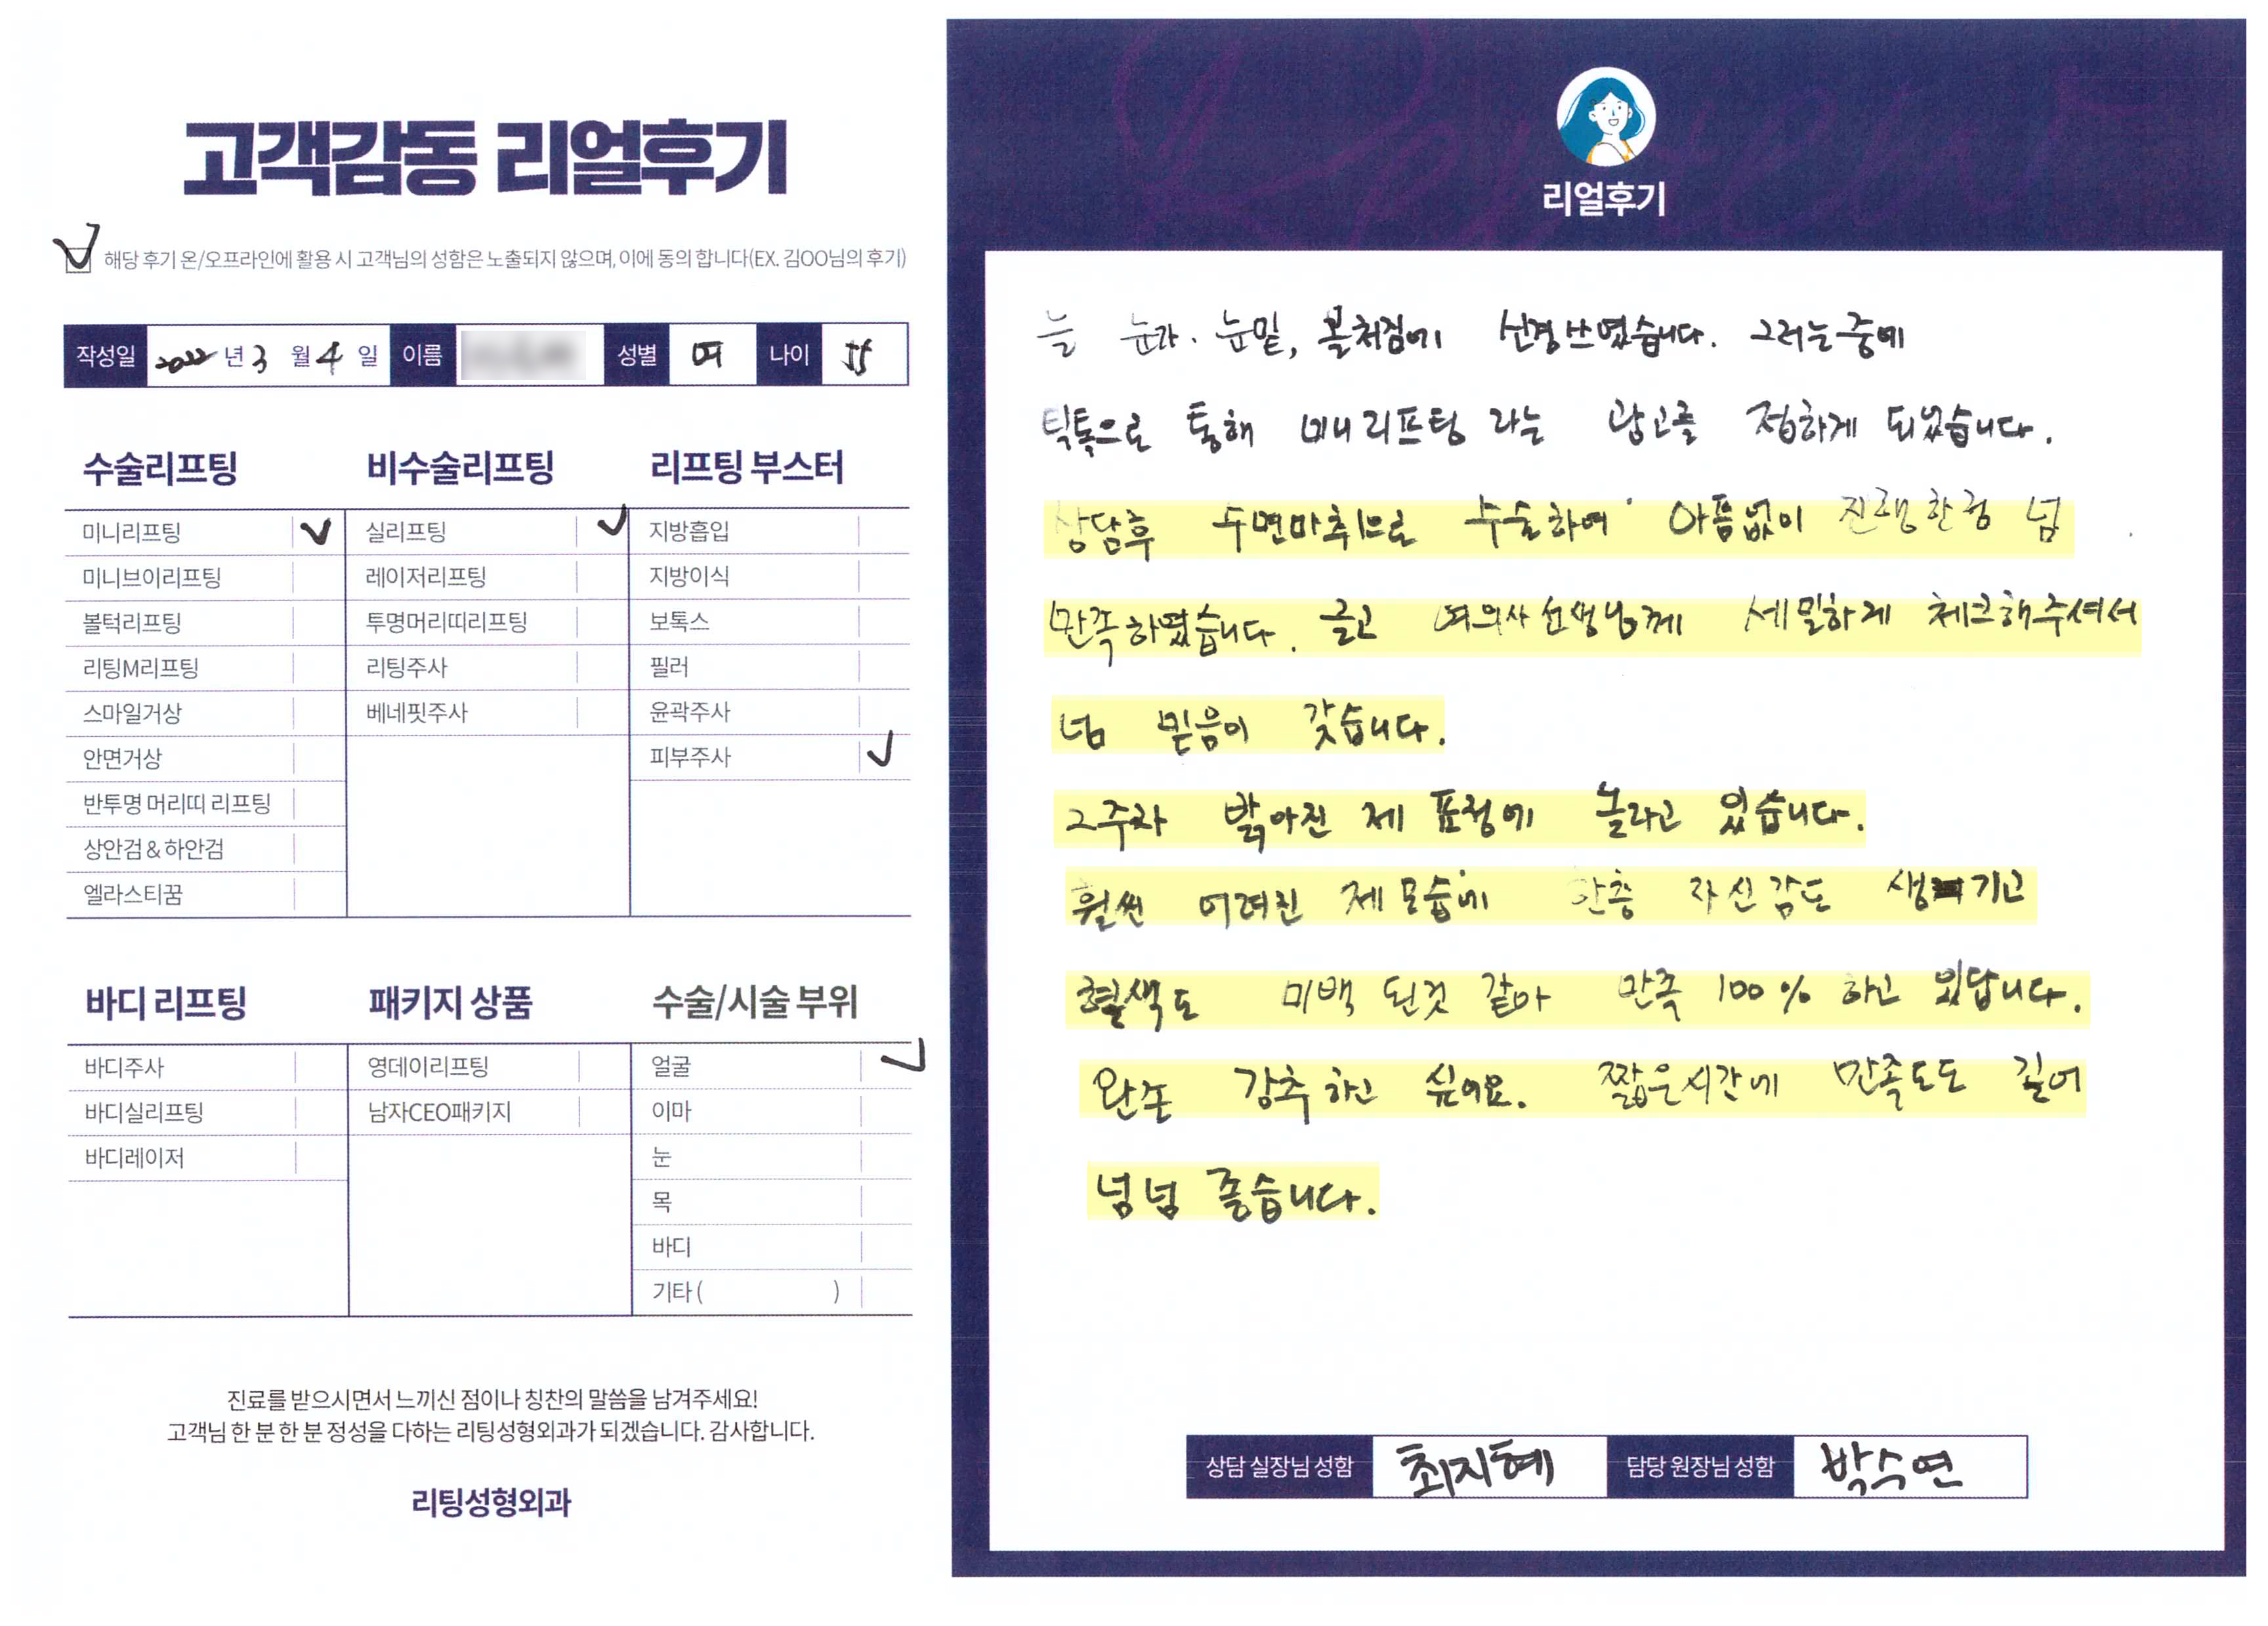 고객감동 리얼후기
해당 후기 온/오프라인에 활용 시 고객님의 성함은 노출되지 않으며, 이에 동의 합니다(EX. 김OO님의 후기)
작성일 2022 년 3 월 4 일 이름 성별 여 나이 55
수술리프팅 비수술리프팅 리프팅 부스터
미니리프팅 실리프팅 지방흡입
미니브이리프팅 레이저리프팅 지방이식
볼턱리프팅 투명머리띠리프팅 보톡스
리팅M리프팅 리팅주사 필러
스마일거상 베네핏주사 윤곽주사
안면거상 피부주사
반투명 머리띠 리프팅
상안검&하안검
엘라스티꿈
바디 리프팅 패키지 상품 수술/시술 부위
바디주사 영데이리프팅 얼굴
바디실리프팅 남자CEO패키지 이마
바디레이저 눈
목
바디
기타 ( )
진료를 받으시면서 느끼신 점이나 칭찬의 말씀을 남겨주세요!
고객님 한 분 한 분 정성을 다하는 리팅성형외과가 되겠습니다. 감사합니다.
리팅성형외과
리얼후기
늘 눈가. 눈밑, 볼처짐에 신경쓰였습니다. 그러는중에
틱톡으로 통해 미니리프팅 라는 광고를 접하게 되었습니다.
상담후 수면마취으로 수술하여 아픔없이 진행한점 넘
만족하였습니다. 글고 여의사선생님께 세밀하게 체크해주셔서
넘 믿음이 갖습니다.
2주차 밝아진 제 표정에 놀라고 있습니다.
훨씬 어려진 제모습에 한층 자신감도 생기고
혈색도 미백 된것 같아 만족 100% 하고 있답니다.
완존 강추하고 싶어요. 짧은시간에 만족도도 길어
넘넘 좋습니다.
상담 실장님 성함 최지혜 담당 원장님 성함 박수연